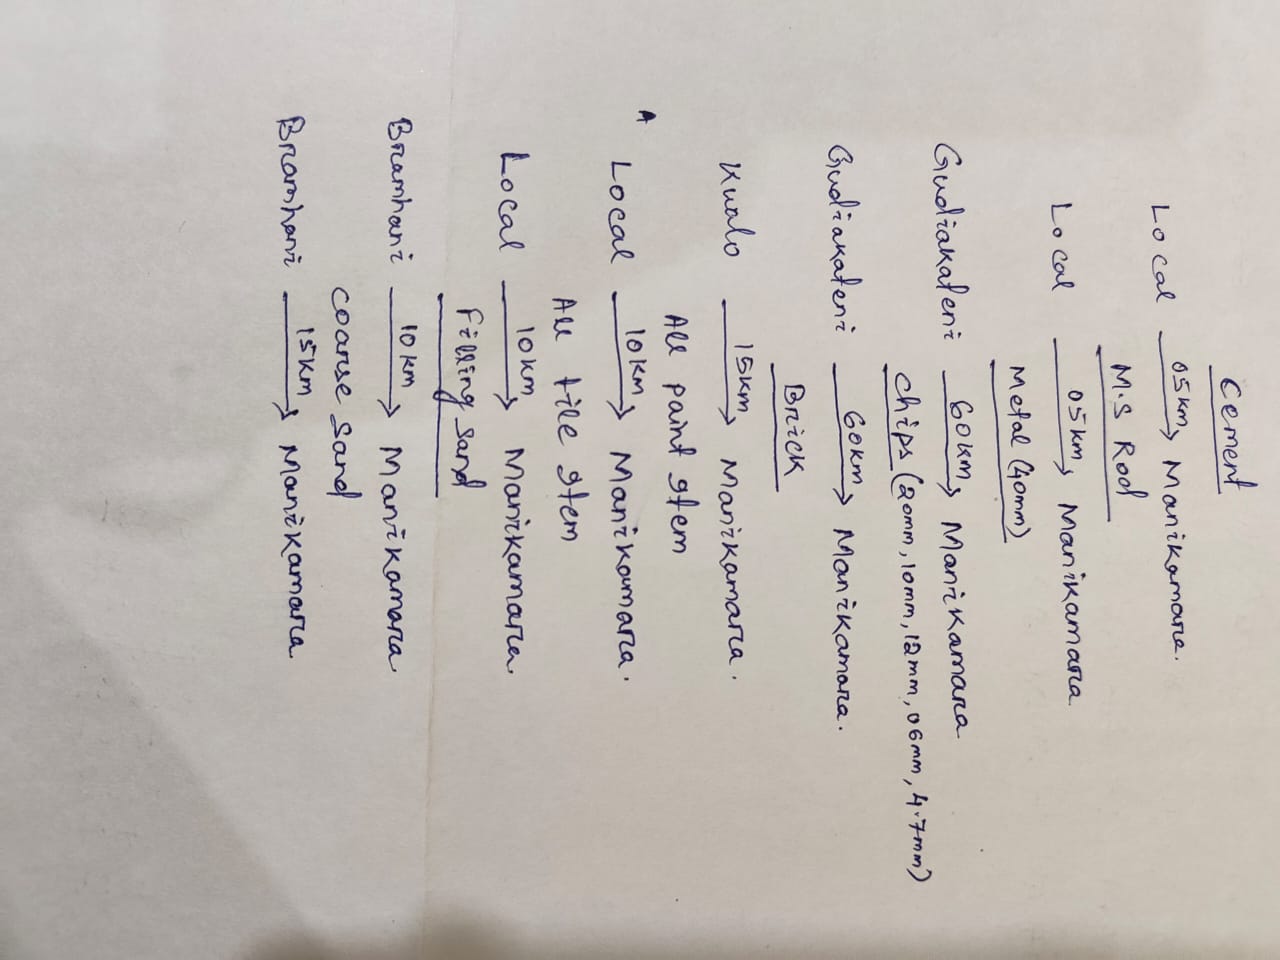 Cement
Local 05km → Manikamara.
M.S Rod
Local 05km → Manikamara
Metal (40mm)
Gudiakateni 60km → Manikamara
Chips (20mm, 10mm, 12mm, 06mm, 4.7mm)
Gudiakateni 60km → Manikamara.
Brick
Kualo 15km → Manikamara.
All paint item
Local 10km → Manikamara.
A
All tile item
Local 10km → Manikamara.
Filling sand
Bramhani 10km → Manikamara.
Coarse sand
Bramhani 15km → Manikamara.